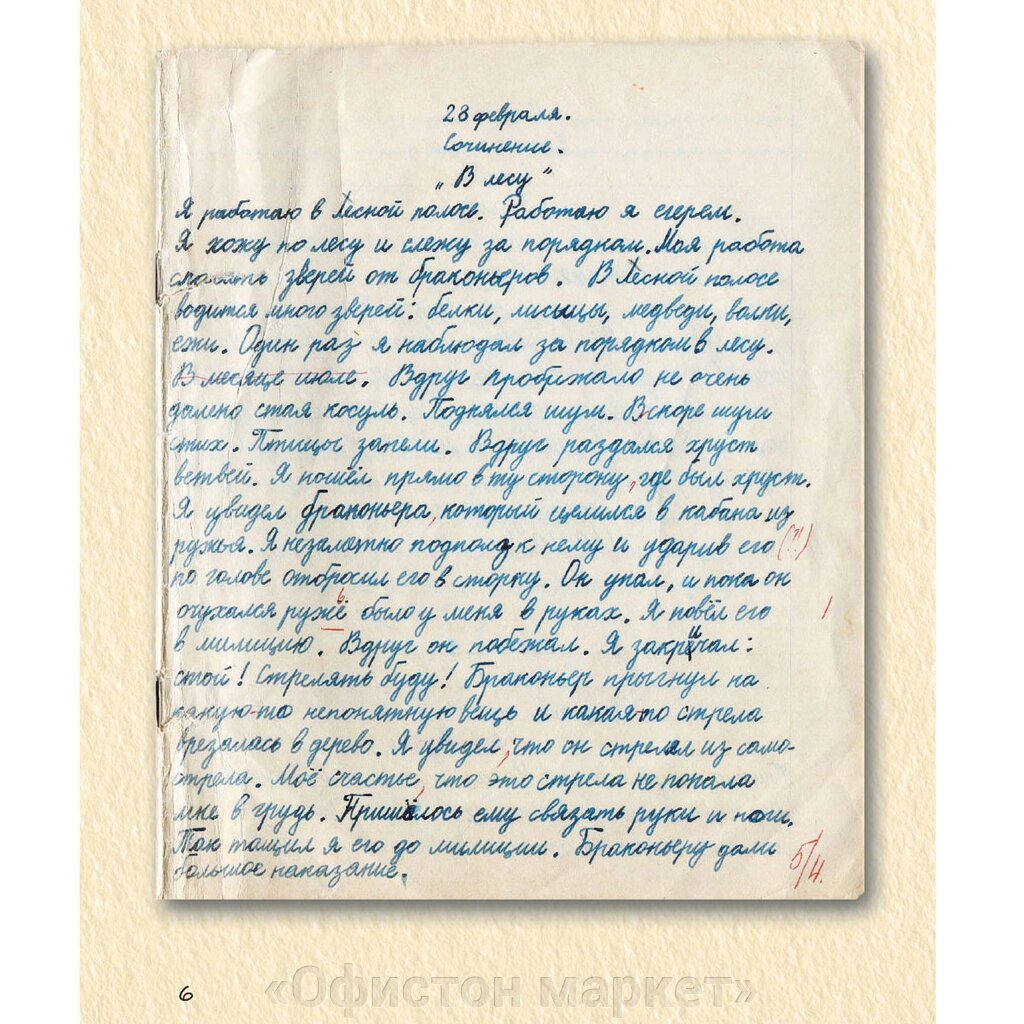 28 февраля.
Сочинение.
„В лесу"
Я работаю в Лесной полосе. Работаю я егерем.
Я хожу по лесу и слежу за порядком. Моя работа
спасать зверей от браконьеров. В Лесной полосе
водится много зверей: белки, лисицы, медведи, волки,
ежи. Один раз я наблюдал за порядком в лесу.
В месяце июле. Вдруг пробежало не очень
далеко стая косуль. Поднялся шум. Вскоре шум
стих. Птицы запели. Вдруг раздался хруст
ветвей. Я пошёл прямо в ту сторону, где был хруст.
Я увидел браконьера, который целился в кабана из
ружья. Я незаметно подполз к нему и ударив его (?!)
по голове отбросил его в сторку. Он упал, и пока он
очухался ружьё было у меня в руках. Я повёл его
в милицию. Вдруг он побежал. Я закричал:
стой! Стрелять буду! Браконьер прыгнул на
какую-то непонятную вещь и какая-то стрела
врезалась в дерево. Я увидел, что он стрелял из само-
стрела. Моё счастье, что это стрела не попала
мне в грудь. Пришлось ему связать руки и ноги.
Так тащил я его до милиции. Браконьеру дали
большое наказание.
5/4.
6
«Офистон маркет»